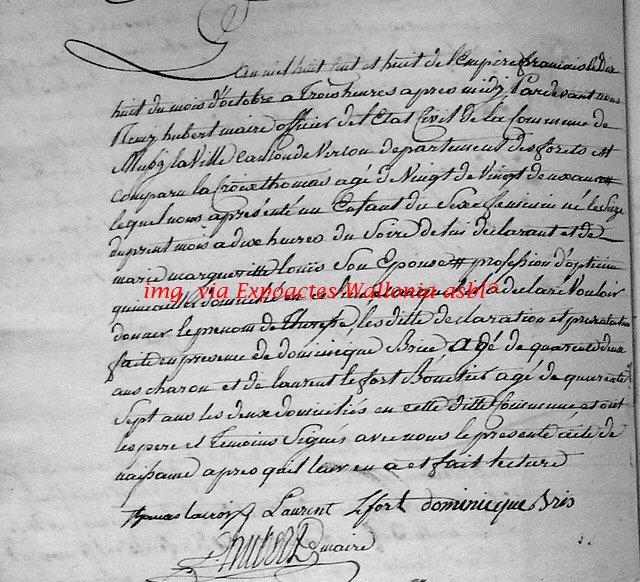 L'an mil huit cent et huit de l'Empire français le dix
huit du mois d'octobre a Trois heures apres midy Pardevant nous
hubert maire officier de l'Etat Civil de la Commune de
Mussy la Ville Canton de Virton departement des forets est
Comparu la Croix thomas agé de Vingt deux ans
lequel nous apresenté un Enfant du Sexe feminin né le Seize
du present mois a dix heures du Soire de lui declarant et de
marie margueritte louis Son Epouse profession
domicilié la declaré Vouloir
donner le prenom de therese, les ditte declaration et presentation
fait en presence de dominique Brié agé de quarente deux
ans charon et de laurent le fort agé de quarente
Sept ans les deux domiciliés en cette ditte Commune et ont
les pere et Temoins Signés avec nous le presente acte de
naissance apres quil leur en a et fait lecture
img. via Expoactes-Wallonia asbl®
thomas lacroix Laurent Lefort dominique Bris
hubert maire